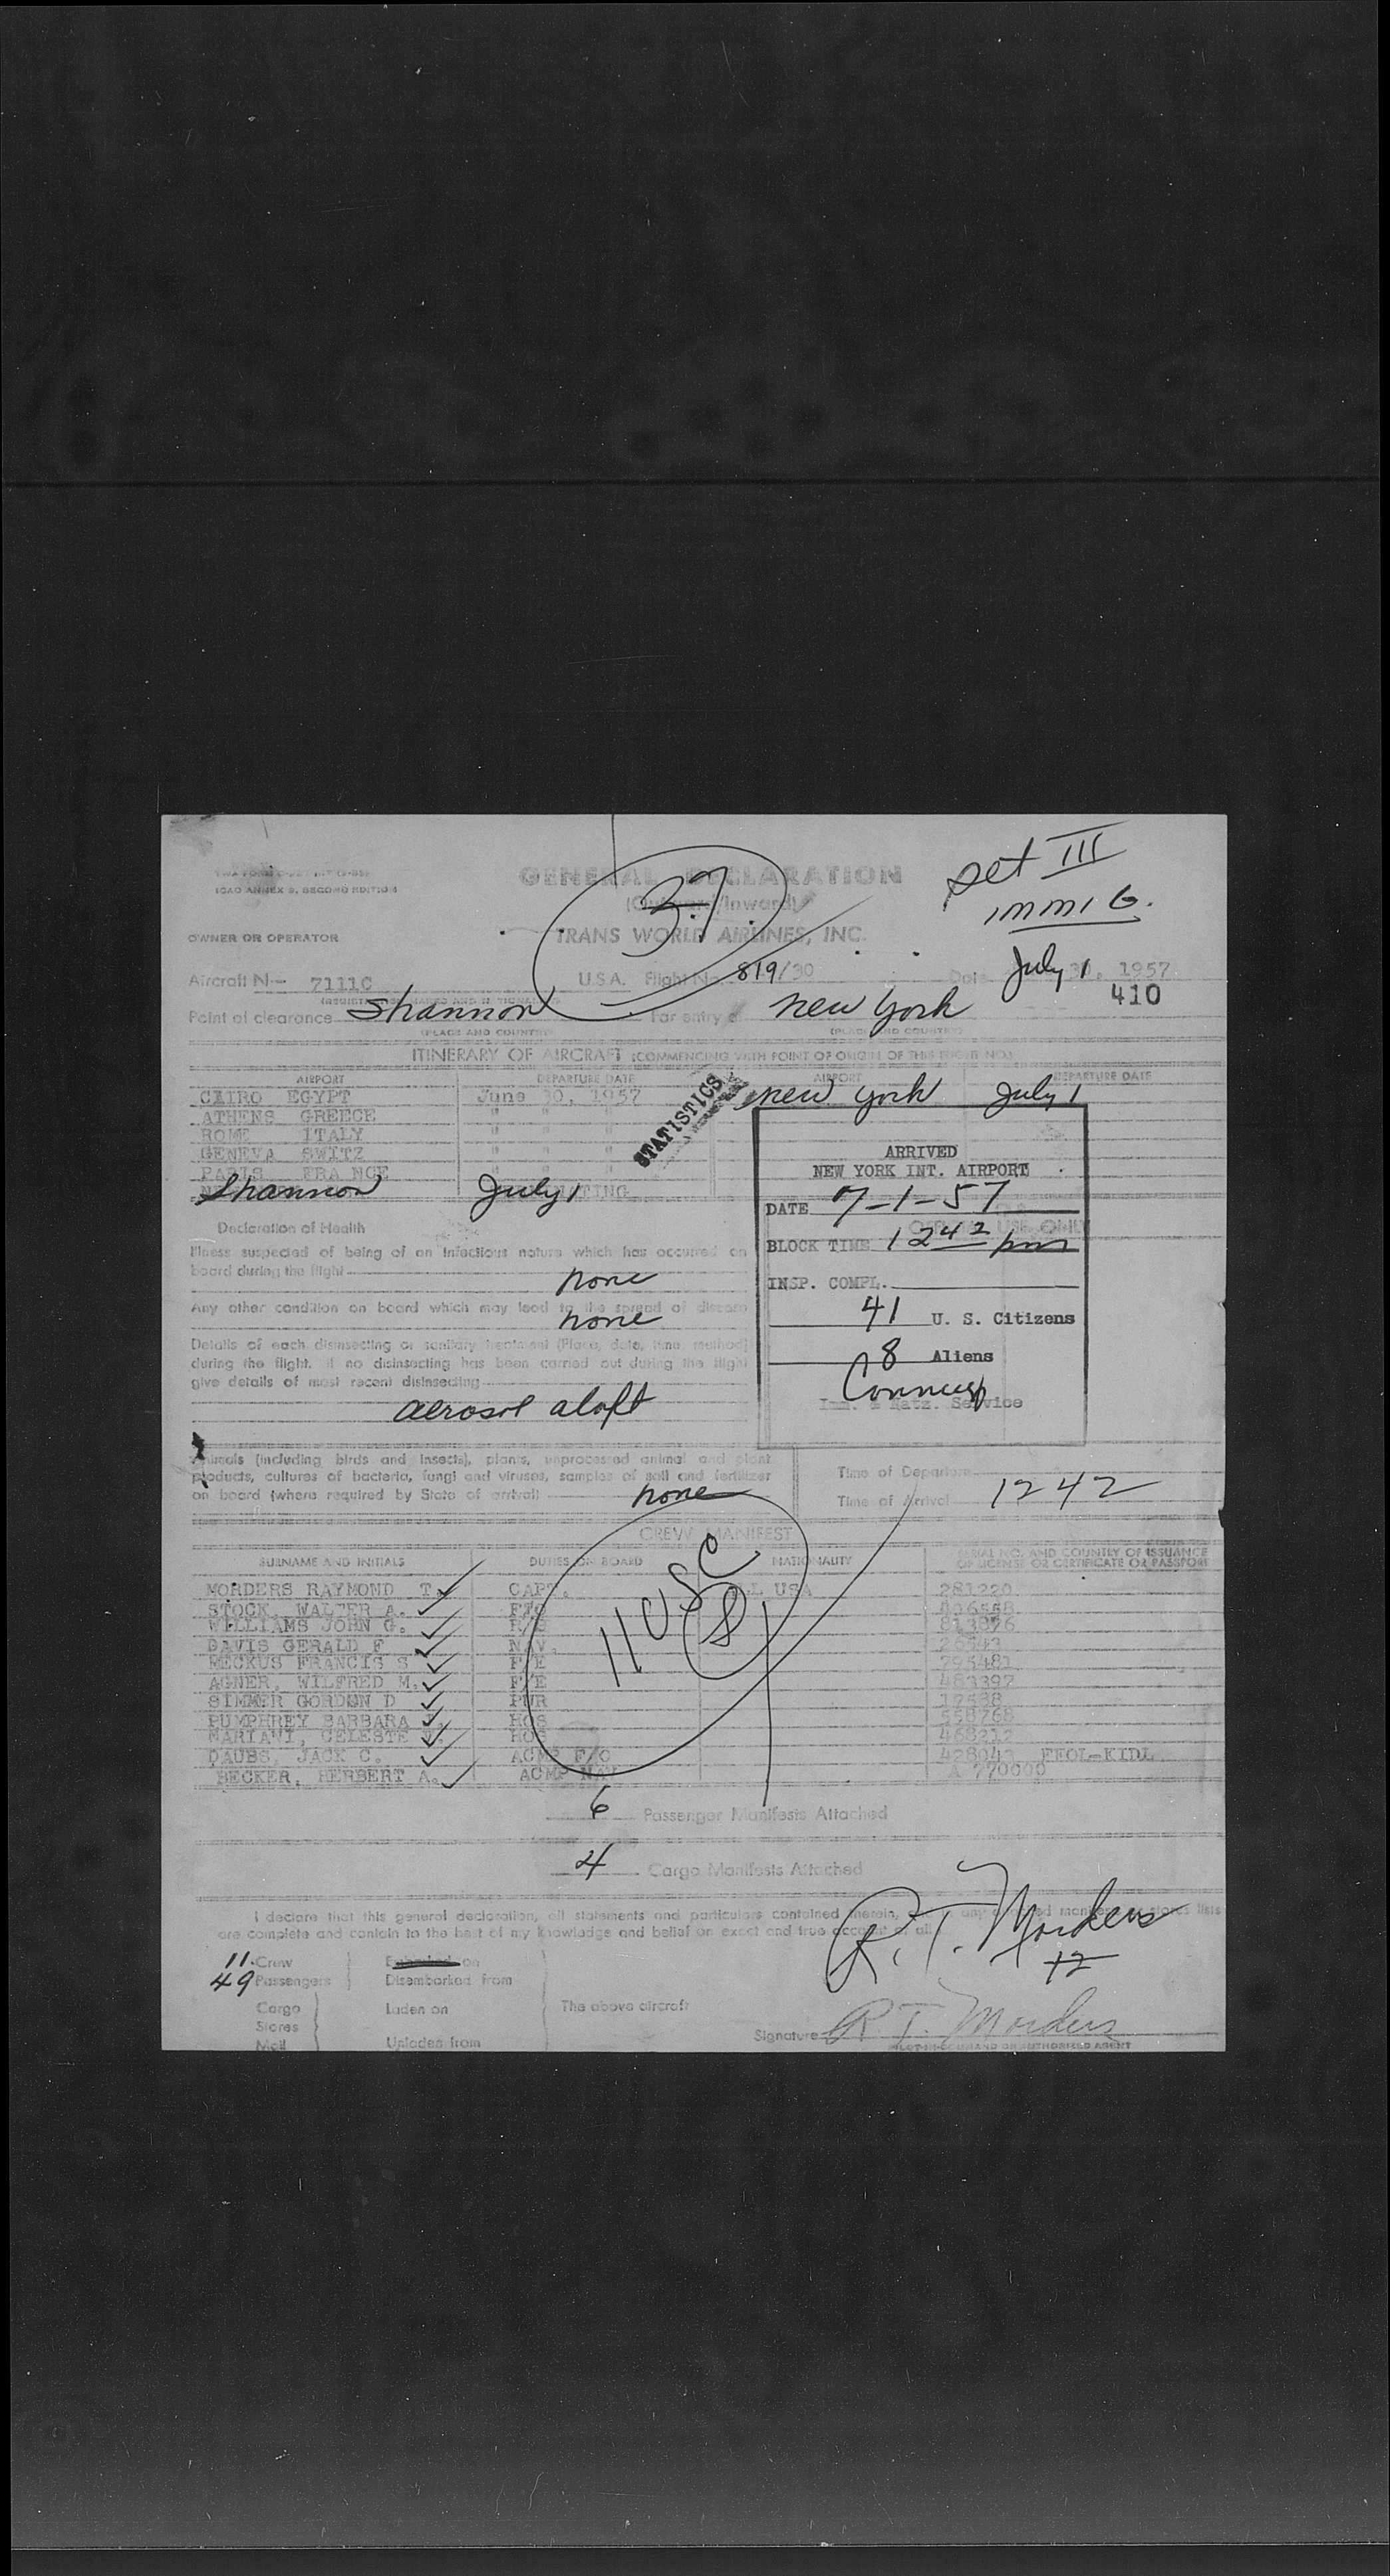 ICAO ANNEX 9, SECOND EDITION
GENERAL DECLARATION
(Outward/Inward)
37
Set III
IMMIG.
OWNER OR OPERATOR
TRANS WORLD AIRLINES, INC.
Aircraft N- 7111C U.S.A. Flight No. 819/30 Date July 1 30, 1957
410
Point of clearance Shannon For entry at New York
(PLACE AND COUNTRY) (PLACE AND COUNTRY)
ITINERARY OF AIRCRAFT (COMMENCING WITH POINT OF ORIGIN OF THIS FLIGHT NO.)
AIRPORT DEPARTURE DATE AIRPORT DEPARTURE DATE
CAIRO EGYPT June 30, 1957 New York July 1
ATHENS GREECE " " "
ROME ITALY " " "
GENEVA SWITZ " " "
PARIS FRANCE " " "
Shannon July 1
STATISTICS
ARRIVED
NEW YORK INT. AIRPORT
DATE 7-1-57
OFFICIAL USE ONLY
BLOCK TIME 1242 pm
INSP. COMPL.
41 U. S. Citizens
8 Aliens
Imm. & Natz. Service
Declaration of Health
Illness suspected of being of an infectious nature which has occurred on
board during the flight
none
Any other condition on board which may lead to the spread of disease
none
Details of each disinsecting or sanitary treatment (Place, date, time, method)
during the flight. If no disinsecting has been carried out during the flight
give details of most recent disinsecting
aerosol aloft
Animals (including birds and insects), plants, unprocessed animal and plant
products, cultures of bacteria, fungi and viruses, samples of soil and fertilizer
on board (where required by State of arrival) none
Time of Departure
Time of Arrival 1242
CREW MANIFEST
SURNAME AND INITIALS DUTIES ON BOARD NATIONALITY SERIAL NO. AND COUNTRY OF ISSUANCE
OF LICENSE OR CERTIFICATE OR PASSPORT
MORDERS RAYMOND T. CAPT. ALL USA 281220
STOCK, WALTER A. F/O
WILLIAMS JOHN G. 813876
DAVIS GERALD F NAV. 26543
MECKUS FRANCIS S F/E 295481
AGNER, WILFRED M. F/E 483397
SIMMER GORDON D PUR
PUMPHREY BARBARA HOS 558768
MARIANI, CELESTE HOS 468212
DAUBS, JACK C. ACMP F/O 428043
BECKER, HERBERT A. ACMP NAV 770000
11 USC
8
6 Passenger Manifests Attached
4 Cargo Manifests Attached
I declare that this general declaration, all statements and particulars contained herein, any
are complete and contain to the best of my knowledge and belief an exact and true account of all
R. T. Morders
12
11 Crew Embarked on
49 Passengers Disembarked from
Cargo Laden on The above aircraft
Stores
Mail Unladen from
Signature R T. Morders
PILOT-IN-COMMAND OR AUTHORISED AGENT